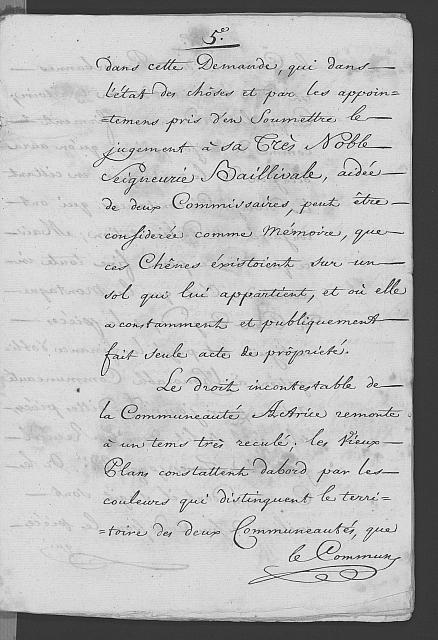 5.e
dans cette Demande, qui dans
l'état des chôses et par les appoin-
-temens pris d'en Soumettre le
jugement à sa Très Noble
Seigneurie Baillivale, aidée
de deux Commissaires, peut être
considerée comme Mémoire, que
ces Chênes éxistoient sur un
sol qui lui appartient, et où elle
a constamment et publiquement
fait seule acte de propriété.
Le droit incontestable de
la Communeauté Actrice remonte
à un tems très reculé; les Vieux
Plans constattent d'abord par les
couleurs qui distinguent le terri-
-toire des deux Communeautés, que
le Commun